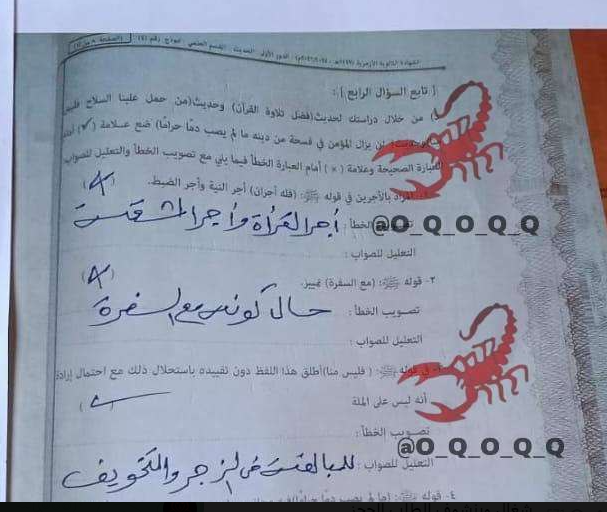 الشهادة الثانوية الأزهرية
[تابع السؤال الرابع]:
من خلال دراستك لحديث(فضل تلاوة القرآن) وحديث(من حمل علينا السلاح فليس
لن يزال المؤمن في فسحة من دينه ما لم يصب دمًا حرامًا) ضع علامة (✓) أمام
العبارة الصحيحة وعلامة (×) أمام العبارة الخطأ فيما يلي مع تصويب الخطأ والتعليل للصواب
المراد بالأجرين في قوله ﷺ: (فله أجران) أجر النية وأجر الضبط.
الخطأ : أجر القرأة وأجر المشقة
@O_Q_O_Q_Q
التعليل للصواب :
٢- قوله ﷺ: (مع السفرة) تمييز.
تصويب الخطأ : حال كونه مع السفرة
التعليل للصواب :
قوله ﷺ: (فليس منا) أطلق هذا اللفظ دون تقييده باستحلال ذلك مع احتمال إرادة
أنه ليس على الملة
تصويب الخطأ :
@O_Q_O_Q_Q
التعليل للصواب : للمبالغة في الزجر والتخويف
٤- قوله ﷺ: (ما لم يصب دمًا حرامًا)